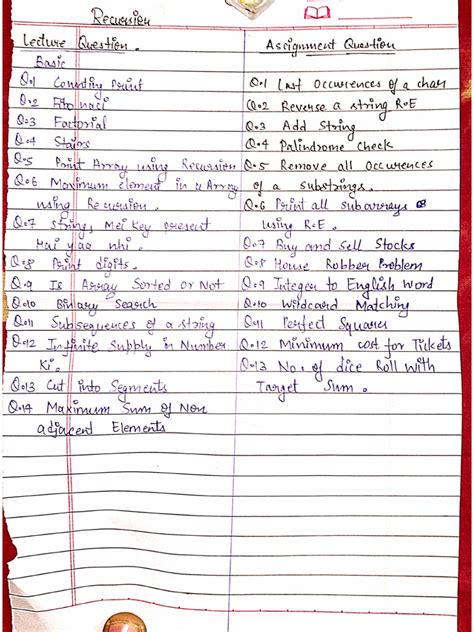 Recursion
Lecture Question.
Basic
Q.1 Counting Print
Q.2 Fibonaci
Q.3 Factorial
Q.4 Stairs
Q.5 Print Array using Recursion
Q.6 Maximum element in a Array
using Recursion.
Q.7 string Mei Key present
Hai yaa nhi.
Q.8 Print digits.
Q.9 Is Array Sorted or Not
Q.10 Binary Search
Q.11 Subsequences of a string
Q.12 Infinite Supply in Number
Ki.
Q.13 Cut into Segments
Q.14 Maximum Sum of Non
adjacent Elements
Assignment Question
Q.1 Last Occurences of a char
Q.2 Reverse a string R.E
Q.3 Add String
Q.4 Palindrome Check
Q.5 Remove all Occurences
of a substrings.
Q.6 Print all subarrays
using R.E.
Q.7 Buy and Sell Stocks
Q.8 House Robber Problem
Q.9 Integer to English Word
Q.10 Wildcard Matching
Q.11 Perfect Squares
Q.12 Minimum cost for Tickets
Q.13 No. of dice Roll with
Target Sum.